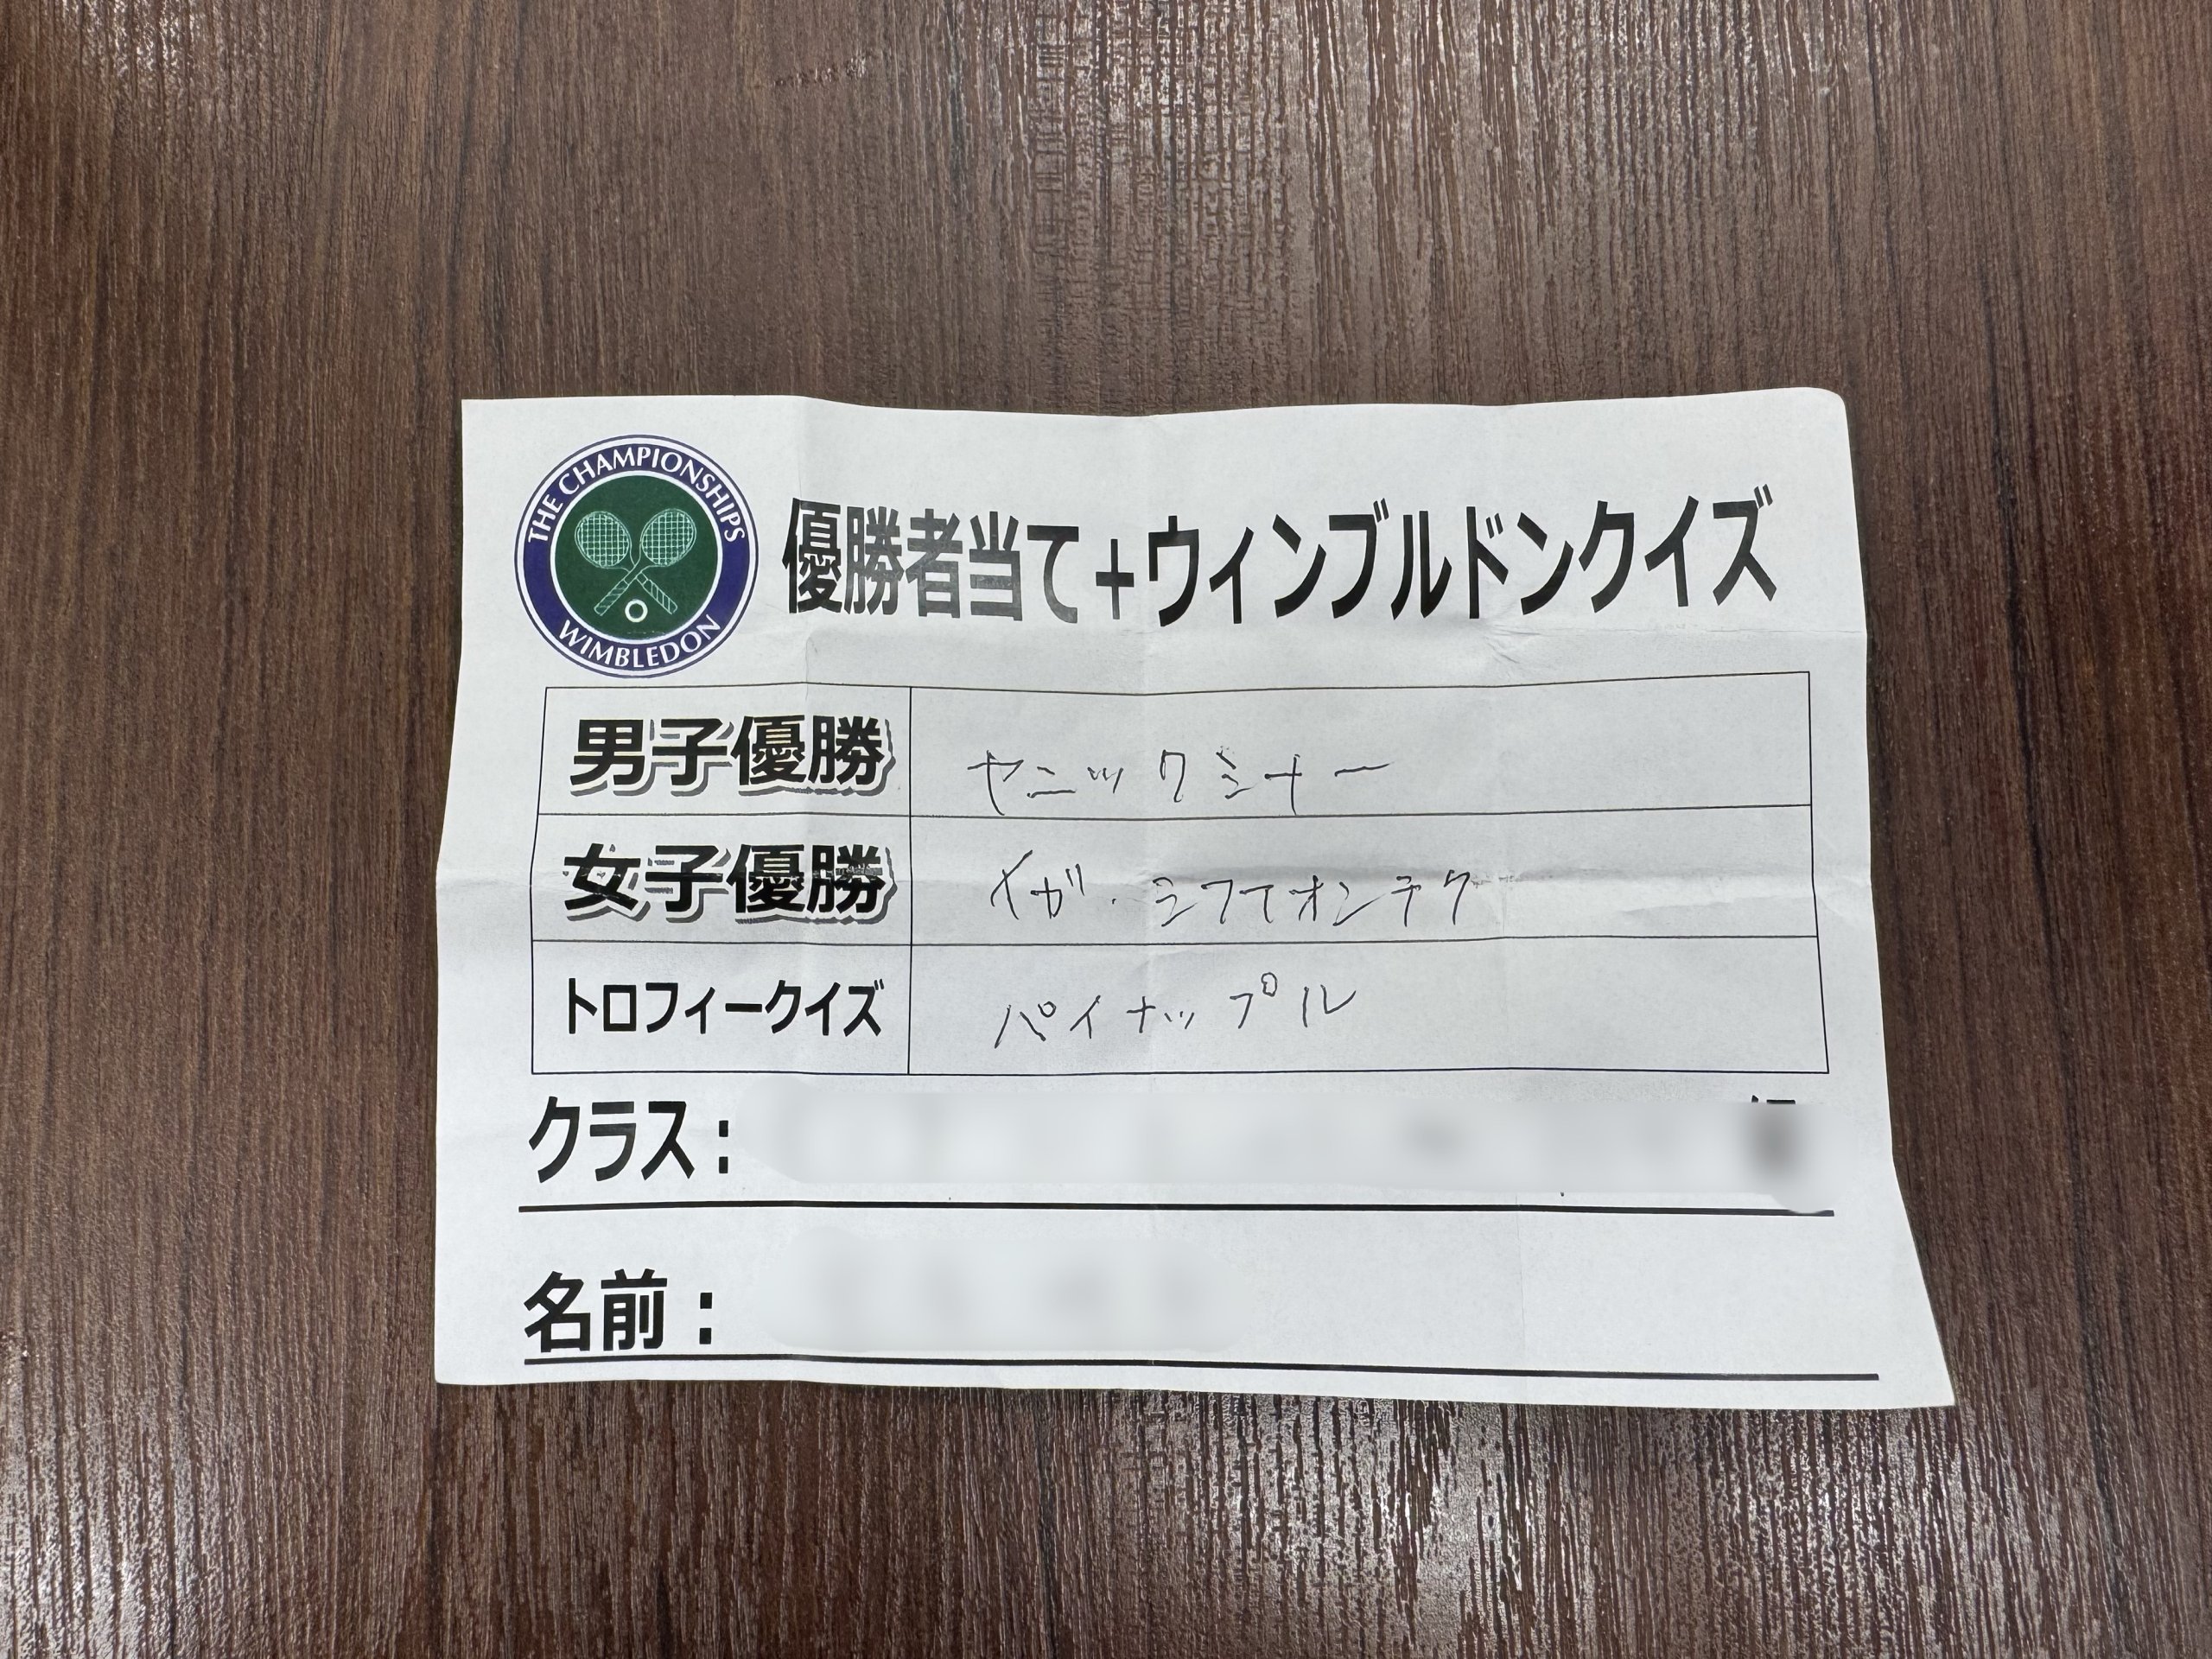 THE CHAMPIONSHIPS
WIMBLEDON
優勝者当て+ウィンブルドンクイズ
男子優勝 ヤニックシナー
女子優勝 イガ・シフエオンテク
トロフィークイズ パイナップル
クラス:
名前: